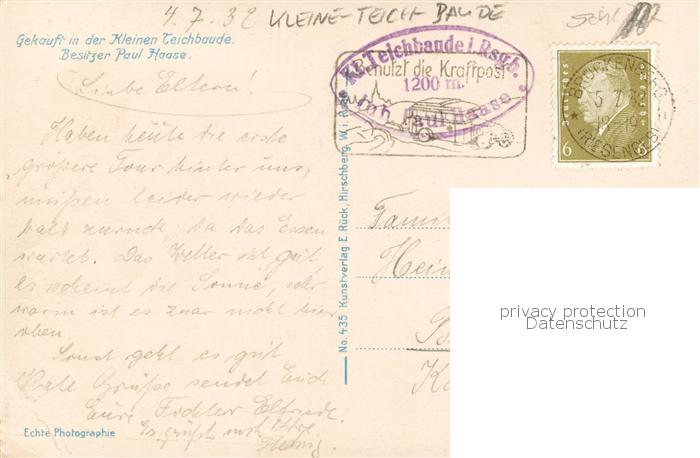 4.7.32 KLEINE-TEICH BAUDE
Gekauft in der Kleinen Teichbaude.
Besitzer Paul Haase.
Kl. Teichbaude i. Rsgb.
1200 m.
Inh. Paul Haase
Benutzt die Kraftpost
BRÜCKENBERG
(RIESENGEB)
Deutsches Reich
6 6
Liebe Eltern!
Haben heute die erste
größere Tour hinter uns,
müßen leider wieder
bald zurück, da das Essen
wartet. Das Wetter ist gut
es scheint die Sonne, sehr
warm ist es zwar nicht hier
oben.
Sonst geht es gut
Viele Grüße sendet Euch
Eure Tochter Elfriede.
Es grüßt
No. 435 Kunstverlag E. Rück, Hirschberg, W. i. Rsgb.
Echte Photographie
Fami
Hein
privacy protection
Datenschutz